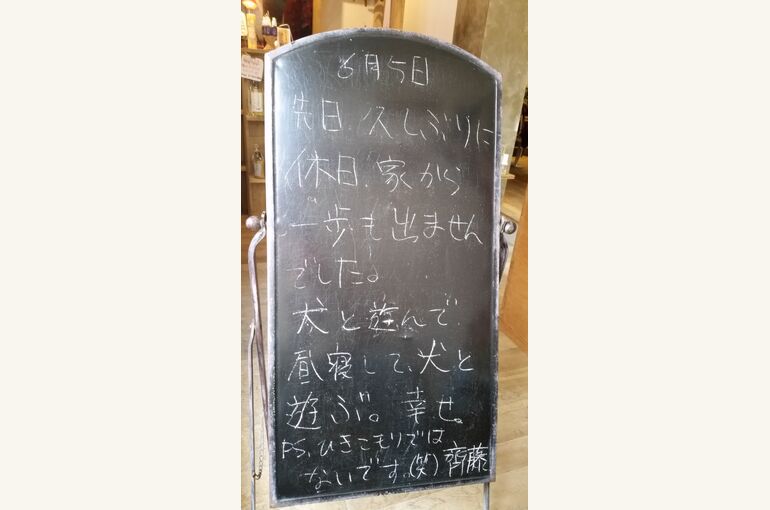 6月5日
先日、久しぶりに
休日、家から
一歩も出ません
でした。
犬と遊んで、
昼寝して、犬と
遊ぶ。幸せ。
PS、ひきこもりでは
ないです。(笑)齊藤